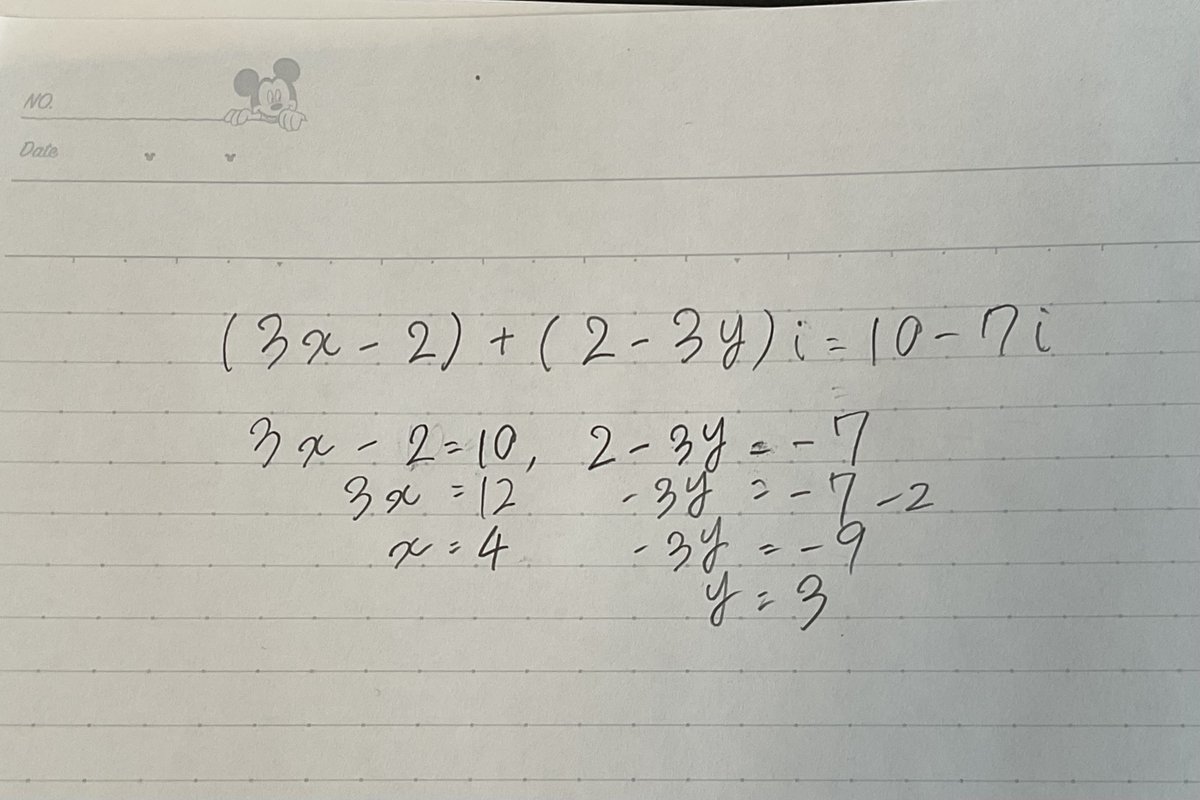 NO.
Date
(3x-2)+(2-3y)i=10-7i
3x-2=10, 2-3y=-7
3x=12 -3y=-7-2
x=4 -3y=-9
y=3